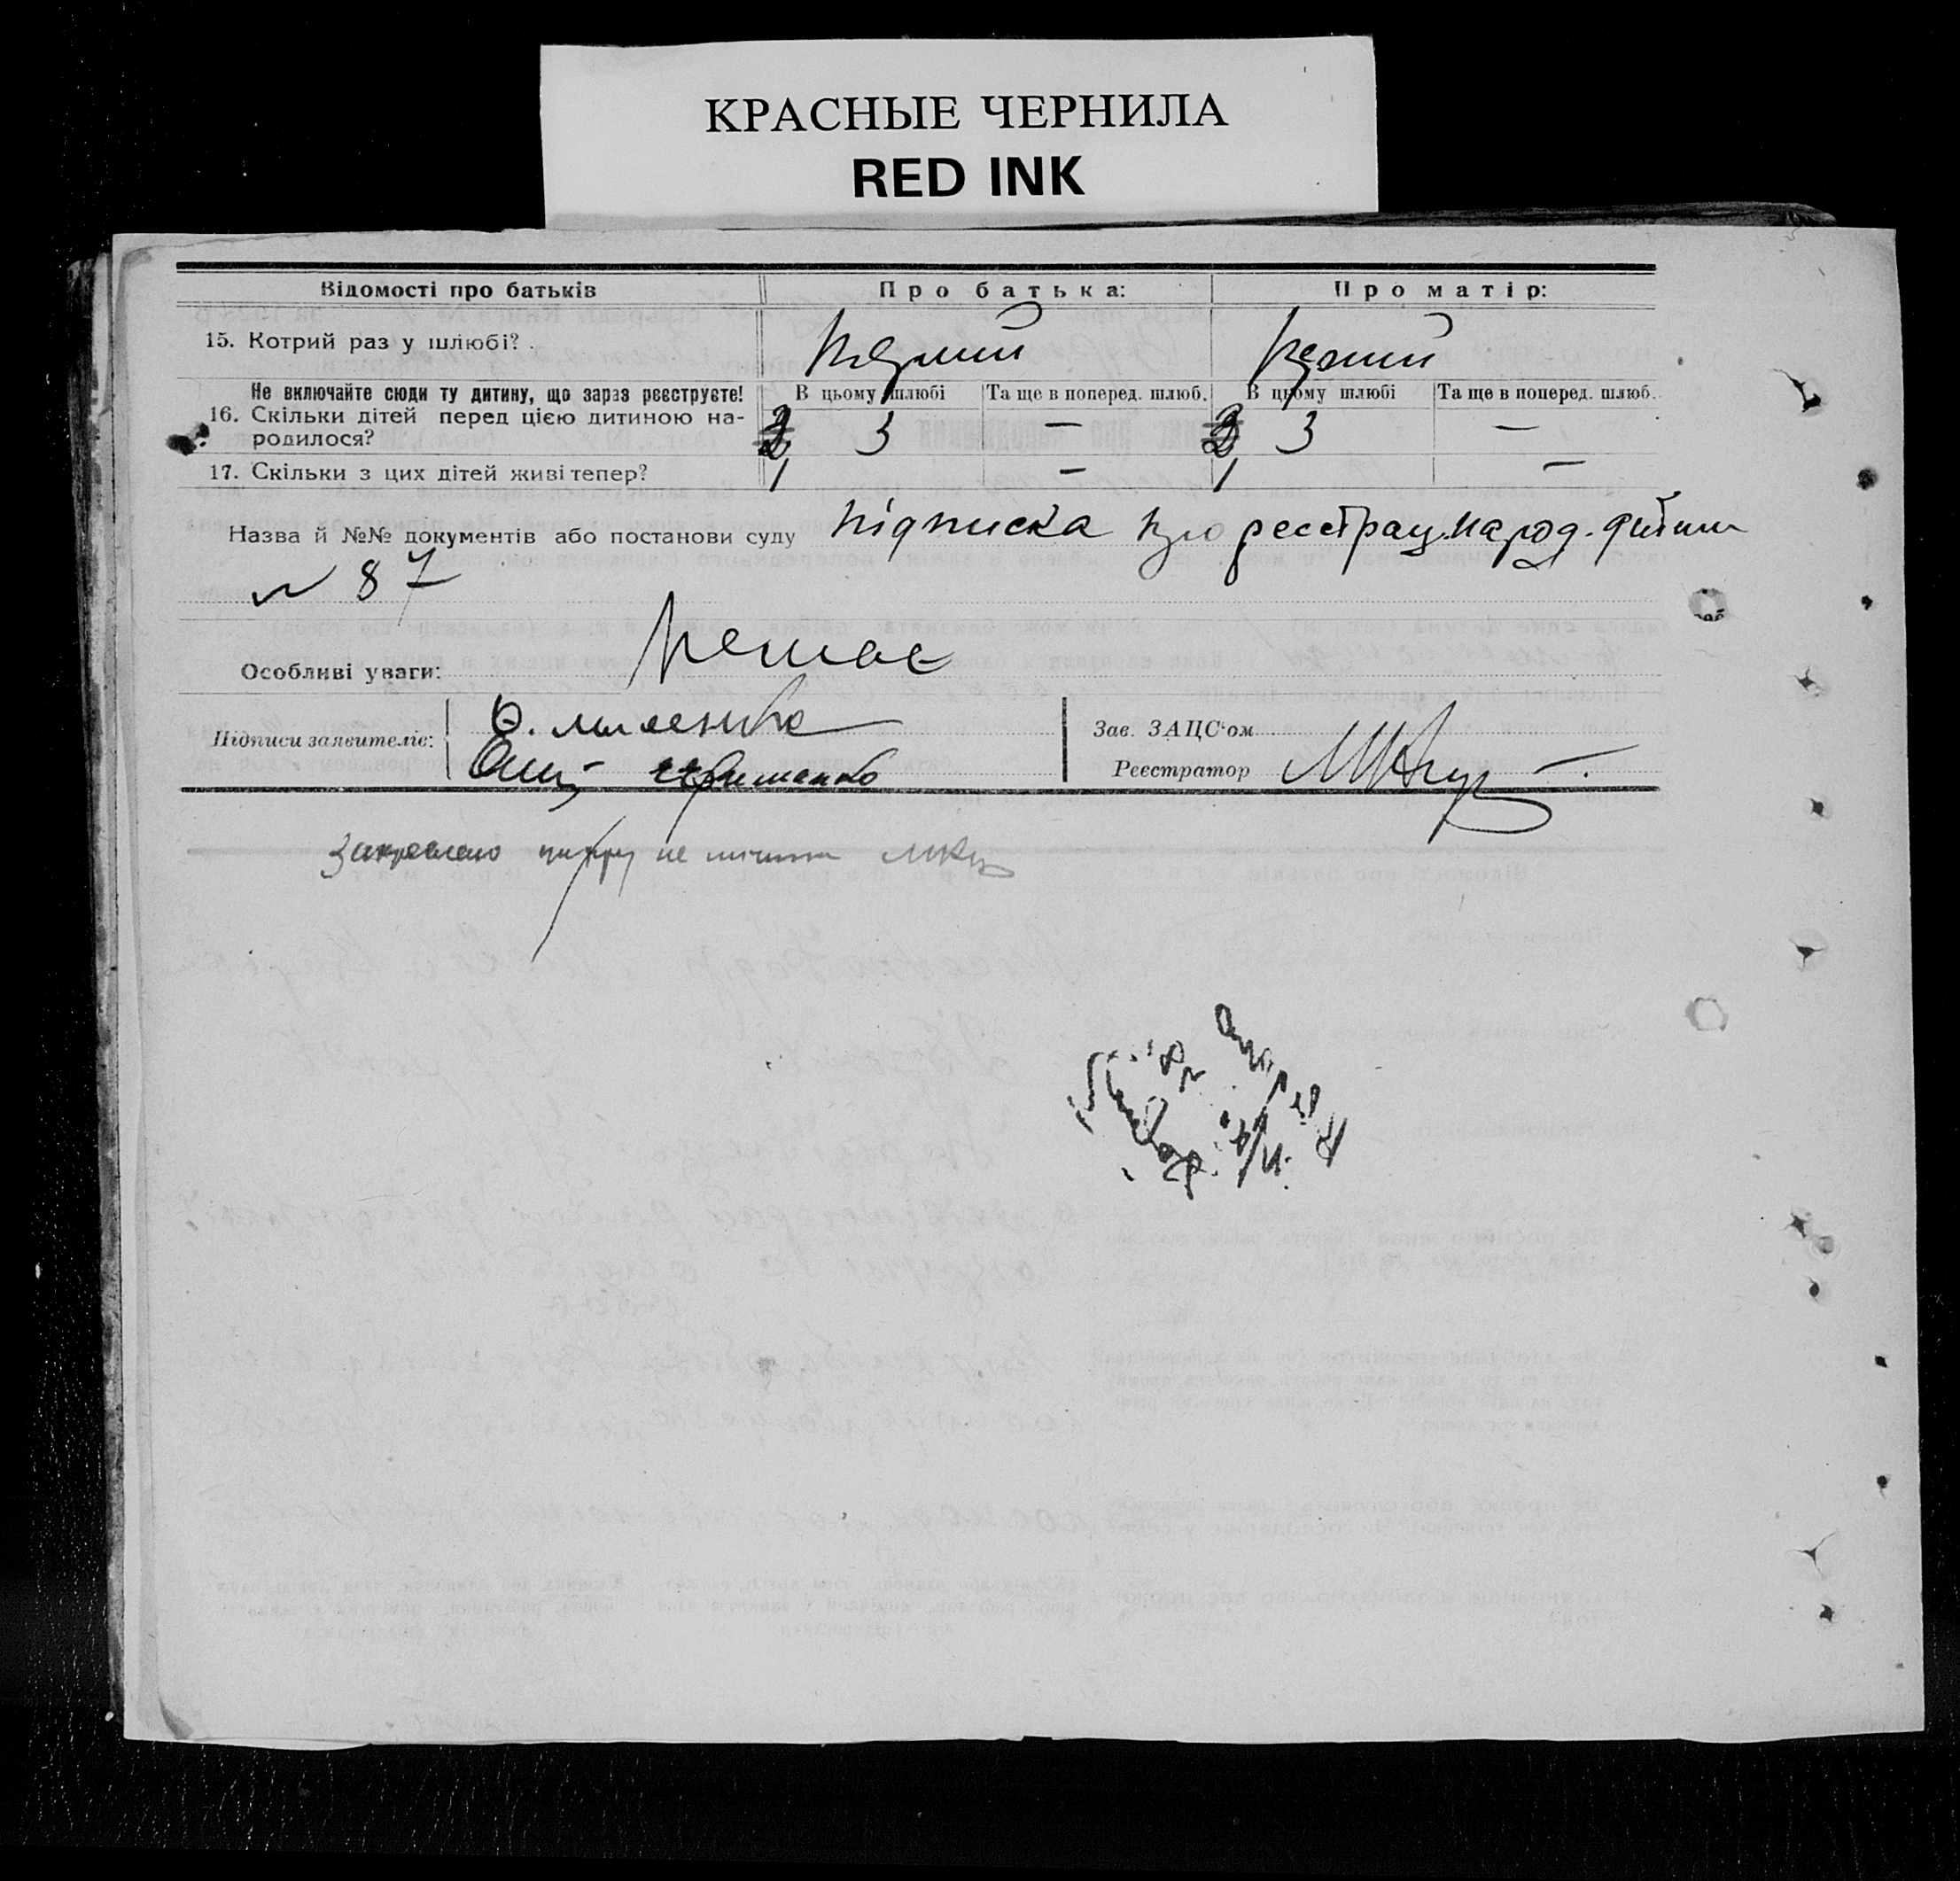 КРАСНЫЕ ЧЕРНИЛА
RED INK
Відомості про батьків Про батька: Про матір:
15. Котрий раз у шлюбі? Первий Первий
Не включайте сюди ту дитину, що зараз реєструєте! В цьому шлюбі Та ще в поперед. шлюб. В цьому шлюбі Та ще в поперед. шлюб.
16. Скільки дітей перед цією дитиною на-
родилося? 3 — 3 —
17. Скільки з цих дітей живі тепер? 1 — 1 —
Назва й №№ документів або постанови суду підписка про реєстрац. народ. дитини
№ 87
Особливі уваги: Немає
Підписи заявителів:
Зав. ЗАЦС'ом
Реєстратор
Закреслено цифру